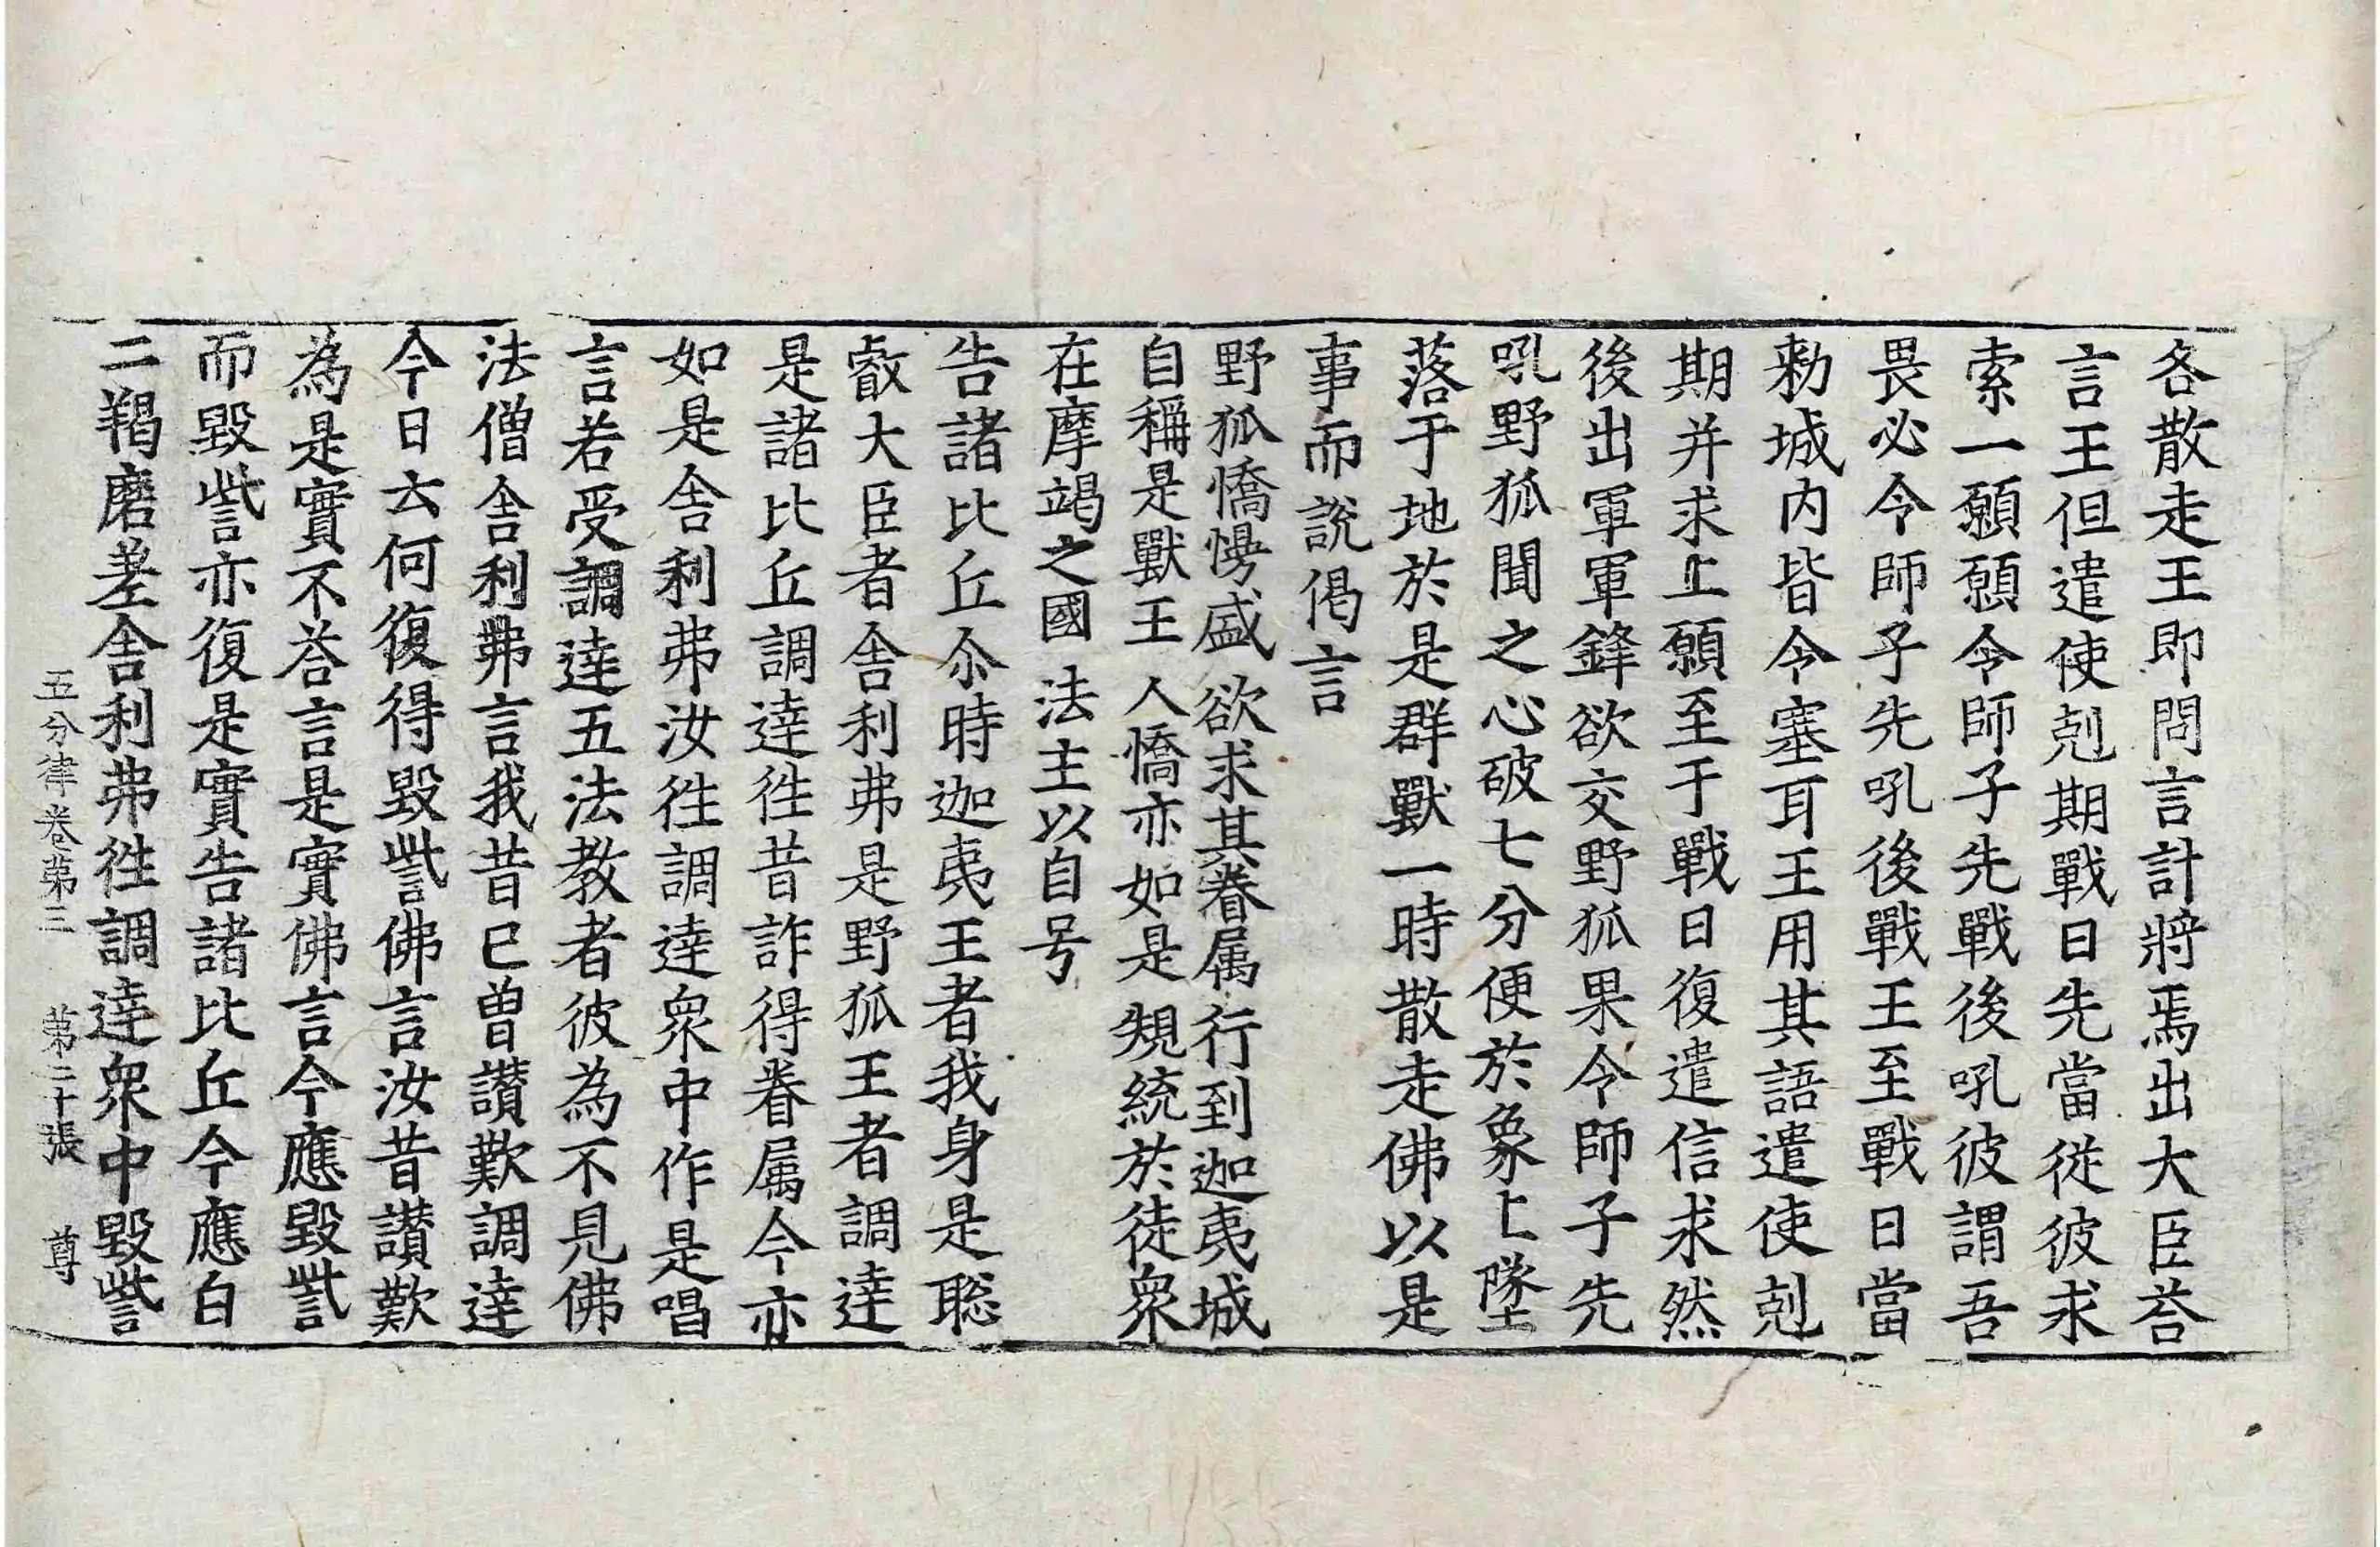 各散走王即問言計將焉出大臣荅
言王但遣使剋期戰日先當從彼求
索一願願令師子先戰後吼彼謂吾
畏必令師子先吼後戰王至戰日當
勑城内皆令塞耳王用其語遣使剋
期并求上願至于戰日復遣信求然
後出軍軍鋒欲交野狐果令師子先
吼野狐聞之心破七分便於象上墜
落于地於是群獸一時散走佛以是
事而說偈言
野狐憍慢盛　欲求其眷属　行到迦夷城
自稱是獸王　人憍亦如是　䂓統於徒衆
在摩竭之國　法主以自号
告諸比丘尒時迦夷王者我身是聡
叡大臣者舍利弗是野狐王者調達
是諸比丘調達徃昔詐得眷属今亦
如是舍利弗汝徃調達衆中作是唱
言若受調達五法教者彼為不見佛
法僧舍利弗言我昔已曽讃歎調達
今日云何復得毀呰佛言汝昔讃歎
為是實不荅言是實佛言今應毀呰
而毀呰亦復是實告諸比丘今應白
二羯磨差舍利弗徃調達衆中毀呰
五分律卷第三　第二十張　尊